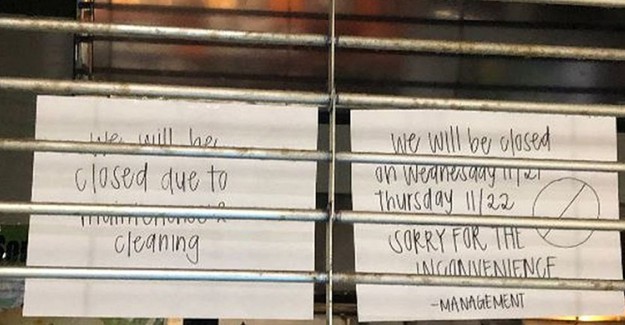 we will be
closed due to
maintenence &
cleaning
we will be closed
on Wednesday 11/21
Thursday 11/22
SORRY FOR THE
INCONVENIENCE
-MANAGEMENT